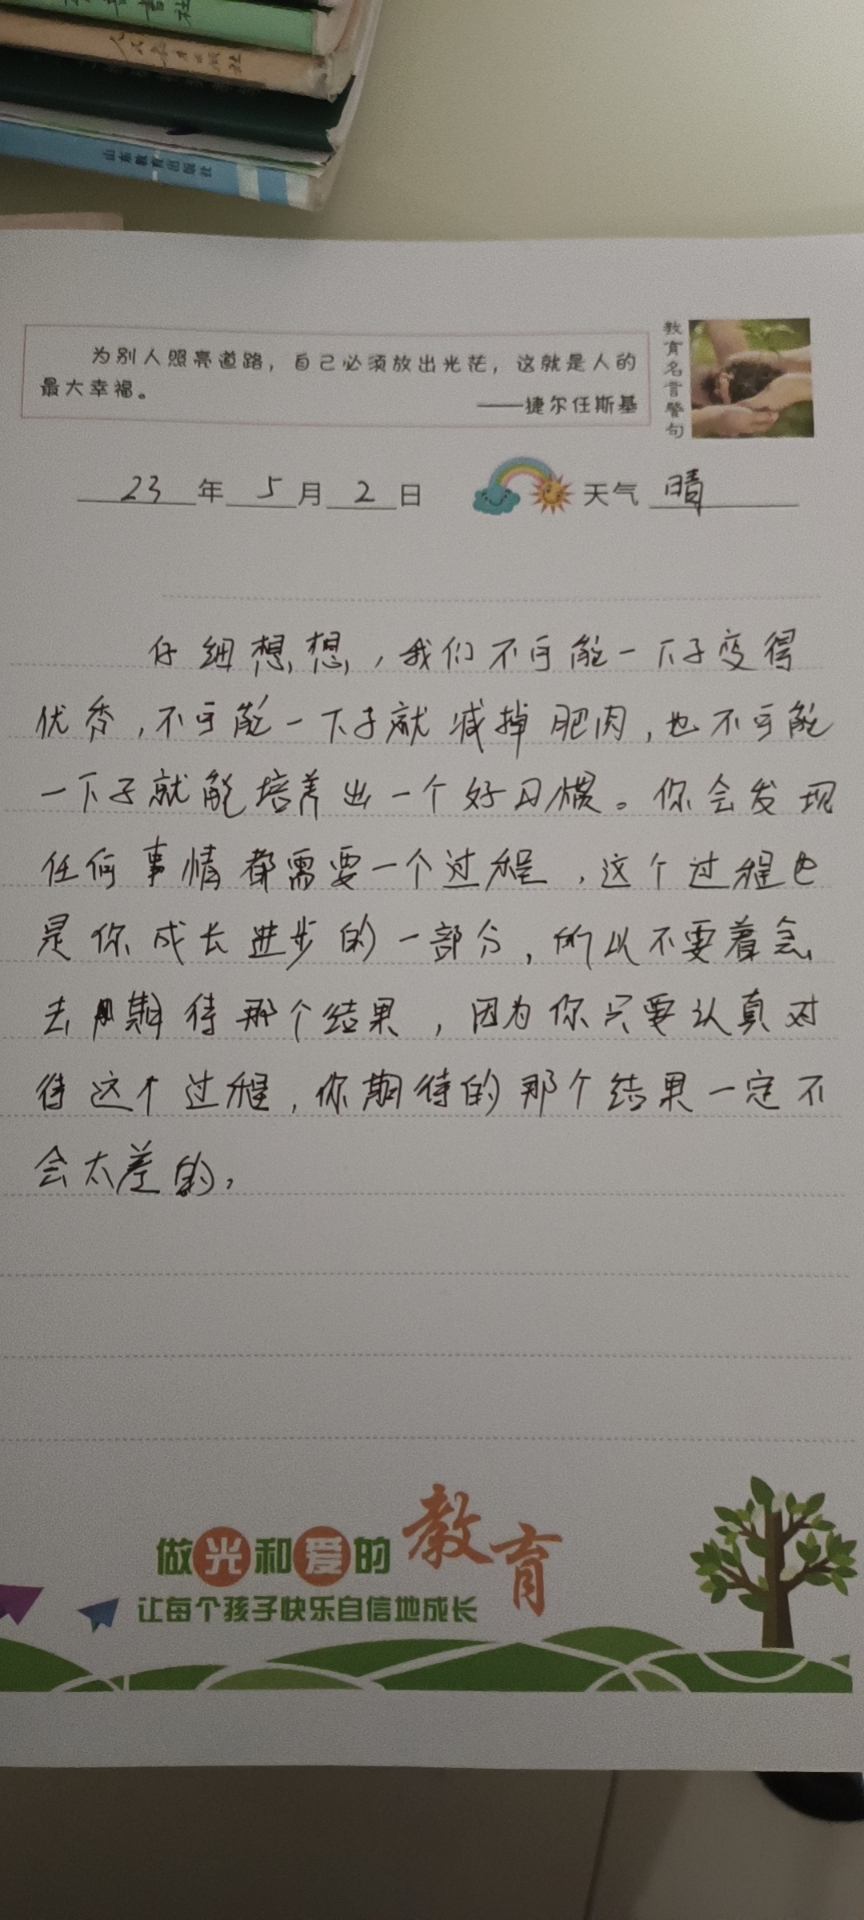 人民教育出版社
山东教育出版社
为别人照亮道路，自己必须放出光芒，这就是人的
最大幸福。
——捷尔任斯基
教育名言警句
23年5月2日 天气 晴
仔细想想，我们不可能一下子变得
优秀，不可能一下子就减掉肥肉，也不可能
一下子就能培养出一个好习惯。你会发现
任何事情都需要一个过程，这个过程也
是你成长进步的一部分，所以不要着急
去期待那个结果，因为你只要认真对
待这个过程，你期待的那个结果一定不
会太差的。
做光和爱的教育
让每个孩子快乐自信地成长